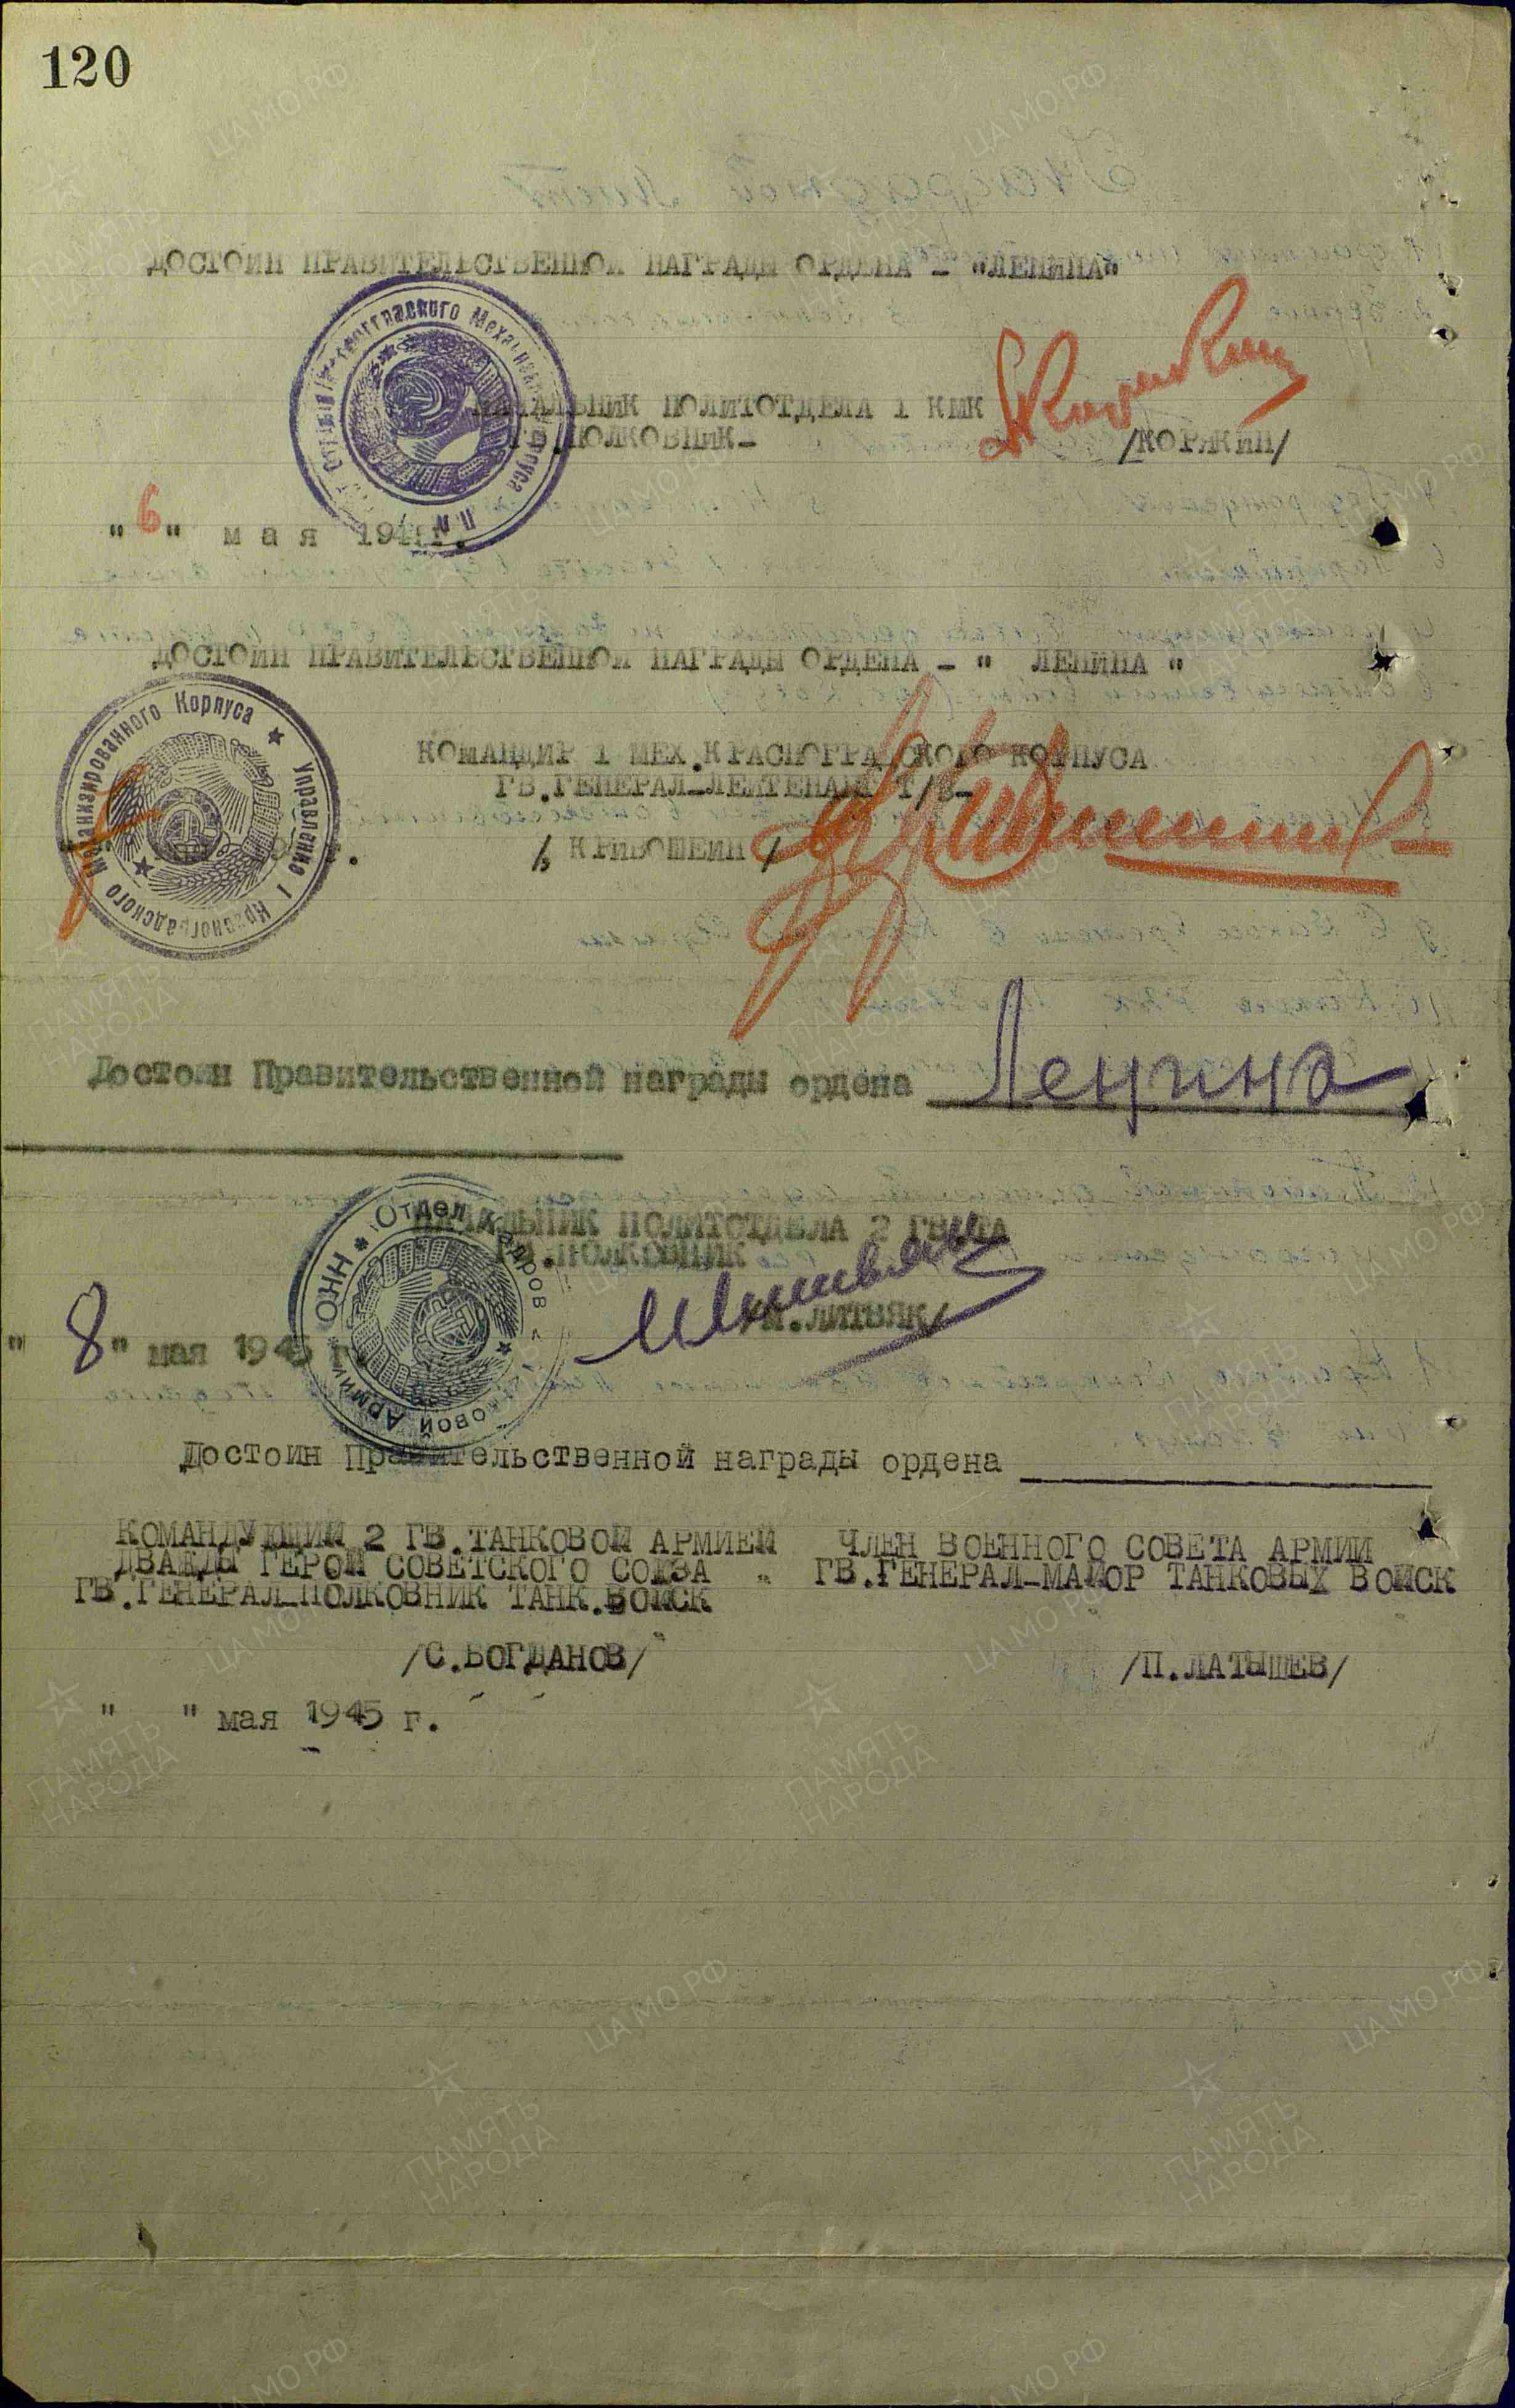 120
ДОСТОИН ПРАВИТЕЛЬСТВЕННОЙ НАГРАДЫ ОРДЕНА - "ЛЕНИНА"
НАЧАЛЬНИК ПОЛИТОТДЕЛА 1 КМК
ГВ.ПОЛКОВНИК-
/КОРЯКИН/
"6" мая 194 г.
ДОСТОИН ПРАВИТЕЛЬСТВЕННОЙ НАГРАДЫ ОРДЕНА - " ЛЕНИНА "
Управление 1 Красноградского Механизированного Корпуса
КОМАНДИР 1 МЕХ.КРАСНОГРАДСКОГО КОРПУСА
ГВ.ГЕНЕРАЛ-ЛЕЙТЕНАНТ Т/В-
/ КРИВОШЕИН /
Достоин Правительственной награды ордена Ленина
НАЧАЛЬНИК ПОЛИТОТДЕЛА 2 ГВ.ТА
ГВ.ПОЛКОВНИК
/М.ЛИТВЯК/
Отдел кадров
Танковой Армии
НКО
"8" мая 1945 г.
Достоин Правительственной награды ордена
КОМАНДУЮЩИЙ 2 ГВ.ТАНКОВОЙ АРМИЕЙ
ДВАЖДЫ ГЕРОЙ СОВЕТСКОГО СОЮЗА
ГВ.ГЕНЕРАЛ-ПОЛКОВНИК ТАНК.ВОЙСК
/С.БОГДАНОВ/
ЧЛЕН ВОЕННОГО СОВЕТА АРМИИ
ГВ.ГЕНЕРАЛ-МАЙОР ТАНКОВЫХ ВОЙСК
/П.ЛАТЫШЕВ/
" " мая 1945 г.
ЦА МО РФ
ПАМЯТЬ
НАРОДА